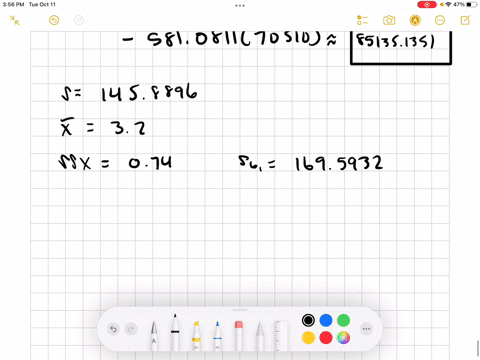 3:56 PM Tue Oct 11
47%
- 581.0811(70510) ≈ 85135.1351
s = 145.8896
x̄ = 3.2
SSx = 0.74 s_b₁ = 169.5932
A